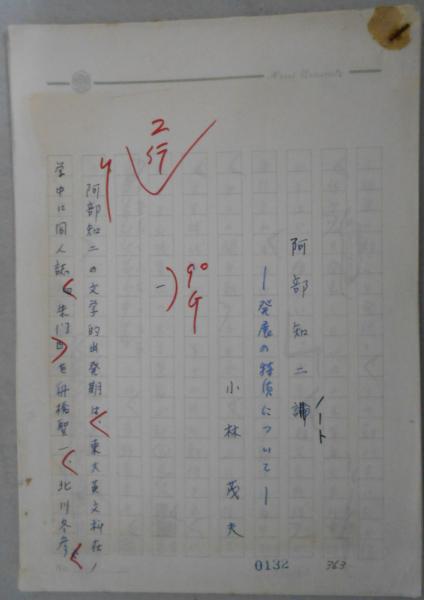 阿部知二論
ノート
―発展の特質について―
小林茂夫
2行
9°G
一
阿部知二の文学的出発期は、東大英文科在
学中に同人誌「朱門」を舟橋聖一、北川冬彦
0132
363